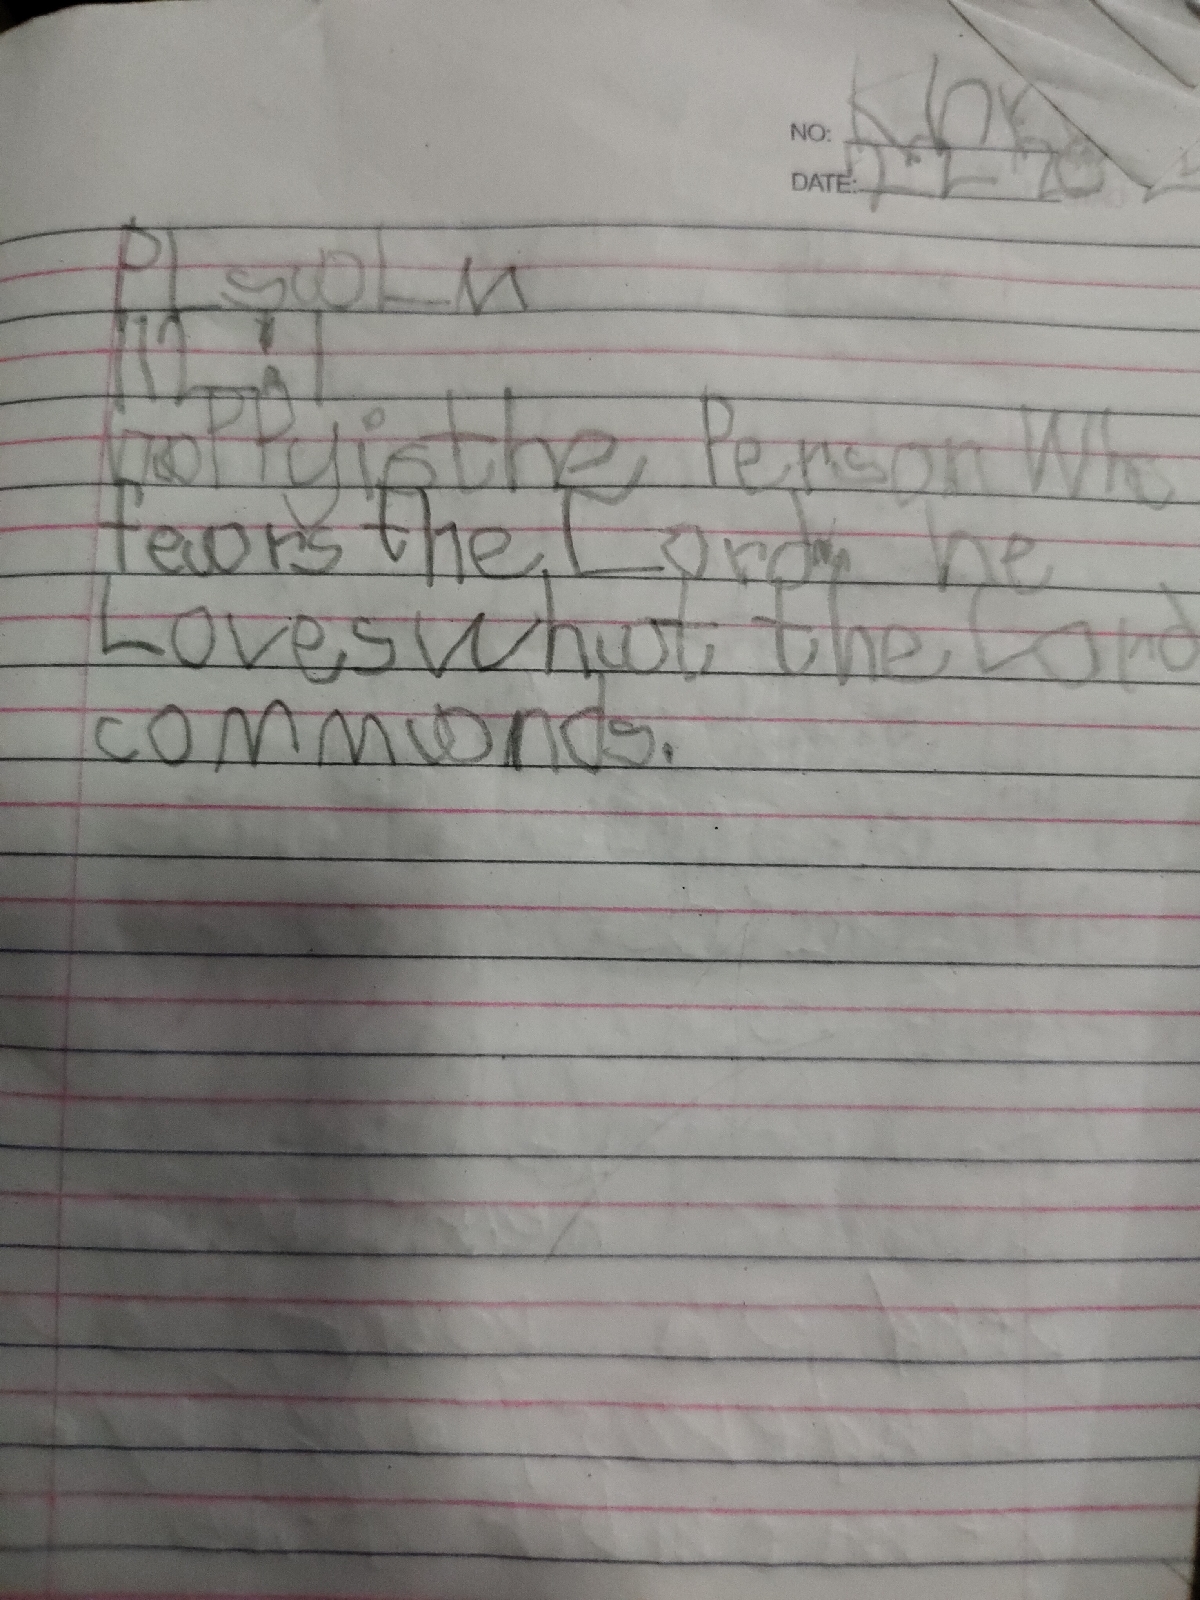 NO:
DATE:
Plsalm
112:1
happy is the Person Who
fears the Lord, he
Loves what the Lord
commands.